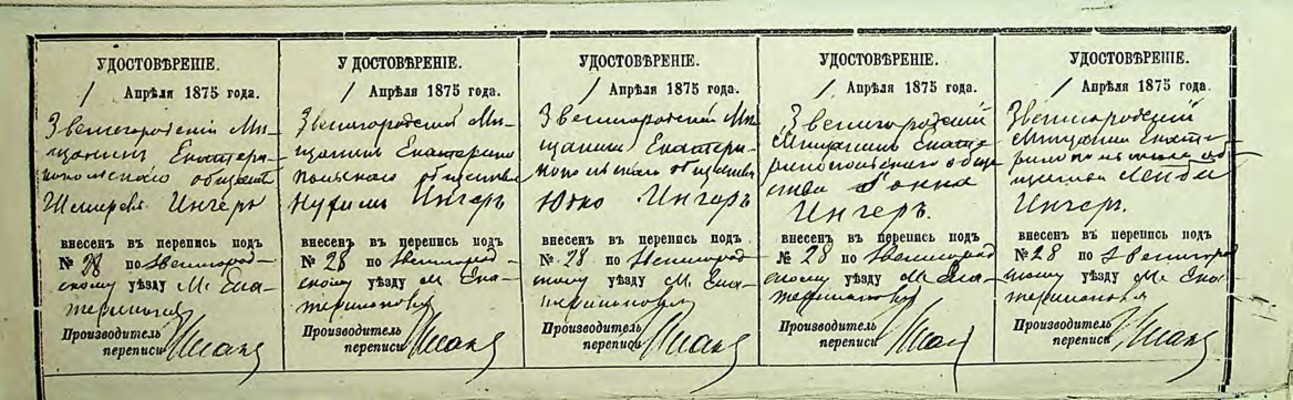 УДОСТОВѢРЕНІЕ.
1 Апрѣля 1875 года.
Звенигородскій Мѣ-
щанинъ Екатери-
нопольскаго общества
Ингеръ
внесенъ въ перепись подъ
№ 28 по Звенигород-
скому уѣзду М. Ека-
Производитель
переписи
У ДОСТОВѢРЕНІЕ.
1 Апрѣля 1875 года.
Звенигородскій Мѣ-
щанинъ Екатерино
польскаго общества
Ингеръ
внесенъ въ перепись подъ
№ 28 по Звенигород-
скому уѣзду М. Ека-
Производитель
переписи
УДОСТОВѢРЕНІЕ.
1 Апрѣля 1875 года.
Звенигородскій Мѣ
щанинъ Екатери-
нопольскаго общества
Юкко Ингеръ
внесенъ въ перепись подъ
№ 28 по Звенигород-
скому уѣзду М. Ека-
Производитель
переписи
УДОСТОВѢРЕНІЕ.
1 Апрѣля 1875 года.
Звенигородскій
Мѣщанинъ Екате-
ринопольскаго обще
ства
Ингеръ.
внесенъ въ перепись подъ
№ 28 по Звенигород
скому уѣзду М. Ека-
Производитель
переписи
УДОСТОВѢРЕНІЕ.
1 Апрѣля 1875 года.
Звенигородскій
Мѣщанинъ Екате-
Ингеръ.
внесенъ въ перепись подъ
№ 28 по Звенигоро
скому уѣзду М. Ека-
Производитель
переписи